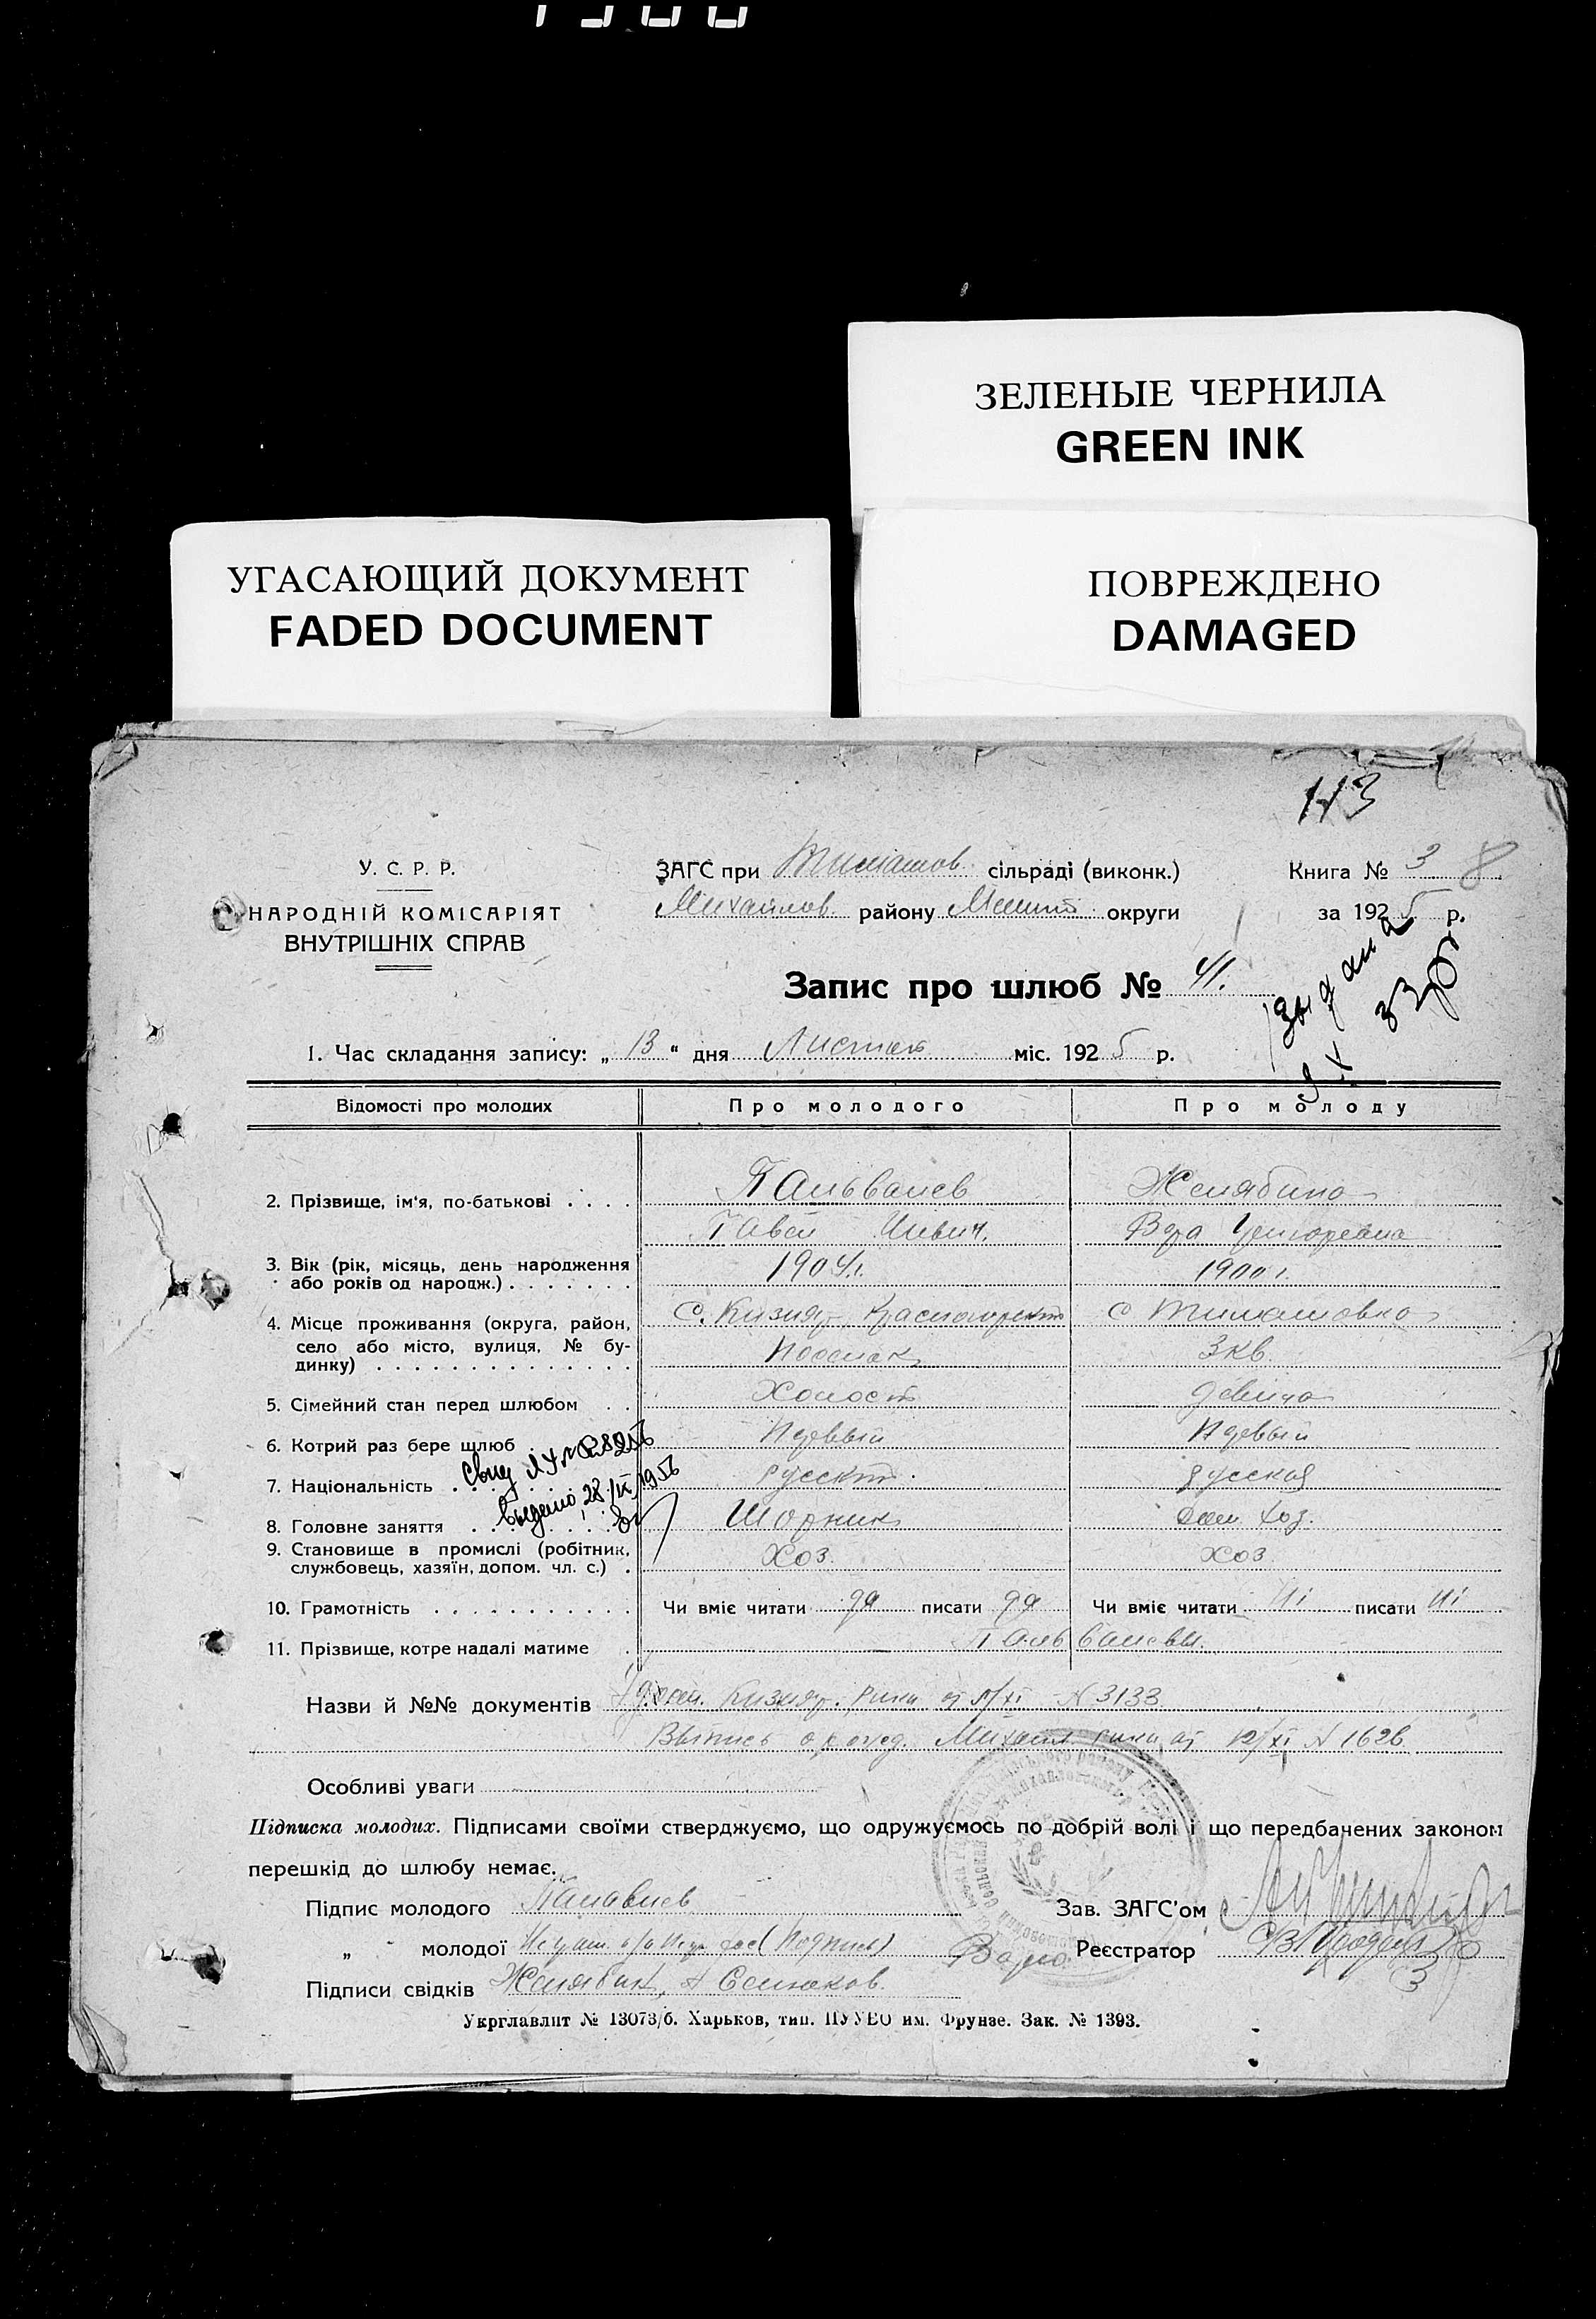 ЗЕЛЕНЫЕ ЧЕРНИЛА
GREEN INK
УГАСАЮЩИЙ ДОКУМЕНТ
FADED DOCUMENT
ПОВРЕЖДЕНО
DAMAGED
113
У. С. Р. Р.
НАРОДНІЙ КОМІСАРІЯТ
ВНУТРІШНІХ СПРАВ
ЗАГС при Тимашов сільраді (виконк.)
Михайлов району Меліт округи
Книга № 3 8
за 1925 р.
Запис про шлюб № 41.
1. Час складання запису: „ 13 “ дня Листоп міс. 1925 р.
Відомості про молодих Про молодого Про молоду
2. Прізвище, ім‘я, по-батькові Пальванев Желябина
Павел Ильич. Вера Григорьевна
3. Вік (рік, місяць, день народження або років од народж.) 1904 г. 1900 г.
4. Місце проживання (округа, район, село або місто, вулиця, № будинку) с. Кизияр с Тимашовка
3 кв.
5. Сімейний стан перед шлюбом Холост девица
6. Котрий раз бере шлюб Первый Первый
7. Національність русск русская
Выдано 28/IX 1956
8. Головне заняття Шорник дом. хоз.
9. Становище в промислі (робітник, службовець, хазяїн, допом. чл. с.) Хоз. хоз
10. Грамотність Чи вміє читати да писати да Чи вміє читати ні писати ні
11. Прізвище, котре надалі матиме Пальваневы.
Назви й №№ документів Кизияр. рика от /XI № 3133
Выпись о рожд. Михайл рика от 12/XI № 1626
Особливі уваги
Підписка молодих. Підписами своїми стверджуємо, що одружуємось по добрій волі і що передбачених законом
перешкід до шлюбу немає.
Підпис молодого Зав. ЗАГС‘ом
„ молодої (подпись) Реєстратор
Підписи свідків Желябин,
Укрглавліт № 13073/б. Харьков, тип. ПУУВО им. Фрунзе. Зак. № 1393.